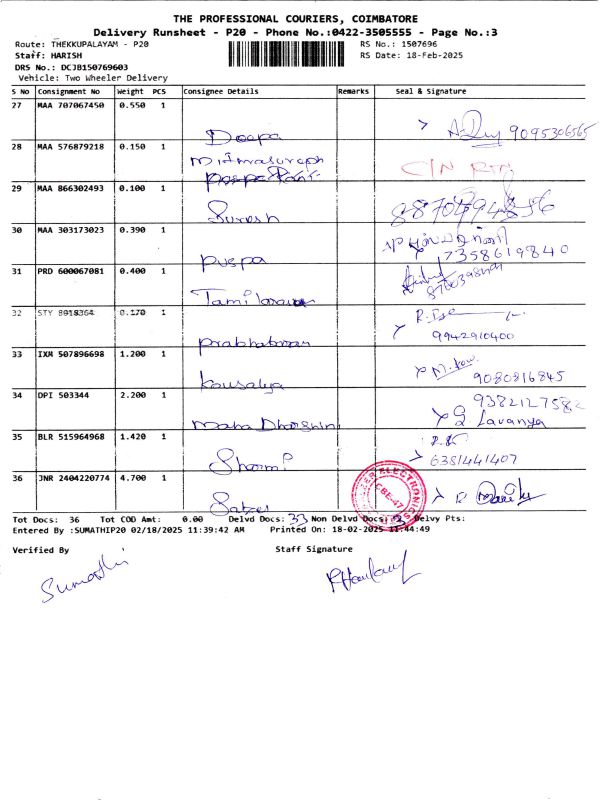 THE PROFESSIONAL COURIERS, COIMBATORE
Delivery Runsheet - P20 - Phone No.:0422-3505555 - Page No.:3
Route: THEKKUPALAYAM - P20 RS No.: 1507696
Staff: HARISH RS Date: 18-Feb-2025
DRS No.: DCJB150769603
Vehicle: Two Wheeler Delivery
S No Consignment No Weight PCS Consignee Details Remarks Seal & Signature
27 MAA 707067450 0.550 1
Deepa 9095306565
28 MAA 576879218 0.150 1
C/N RTN
29 MAA 866302493 0.100 1
Suresh
30 MAA 303173023 0.390 1
puspa 7358619840
31 PRD 600067081 0.400 1
32 STY 8918364 0.170 1
9942910400
33 IXM 507896698 1.200 1
Kousalya 9080816845
34 DPI 503344 2.200 1
Maha Dharshini Lavanya
35 BLR 515964968 1.420 1
6381441407
36 JNR 2404220774 4.700 1
ELECTRONICS
CBE-47
Tot Docs: 36 Tot COD Amt: 0.00 Delvd Docs: 33 Non Delvd Docs: Delvy Pts:
Entered By :SUMATHIP20 02/18/2025 11:39:42 AM Printed On: 18-02-2025 11:44:49
Verified By Staff Signature
Sumathi